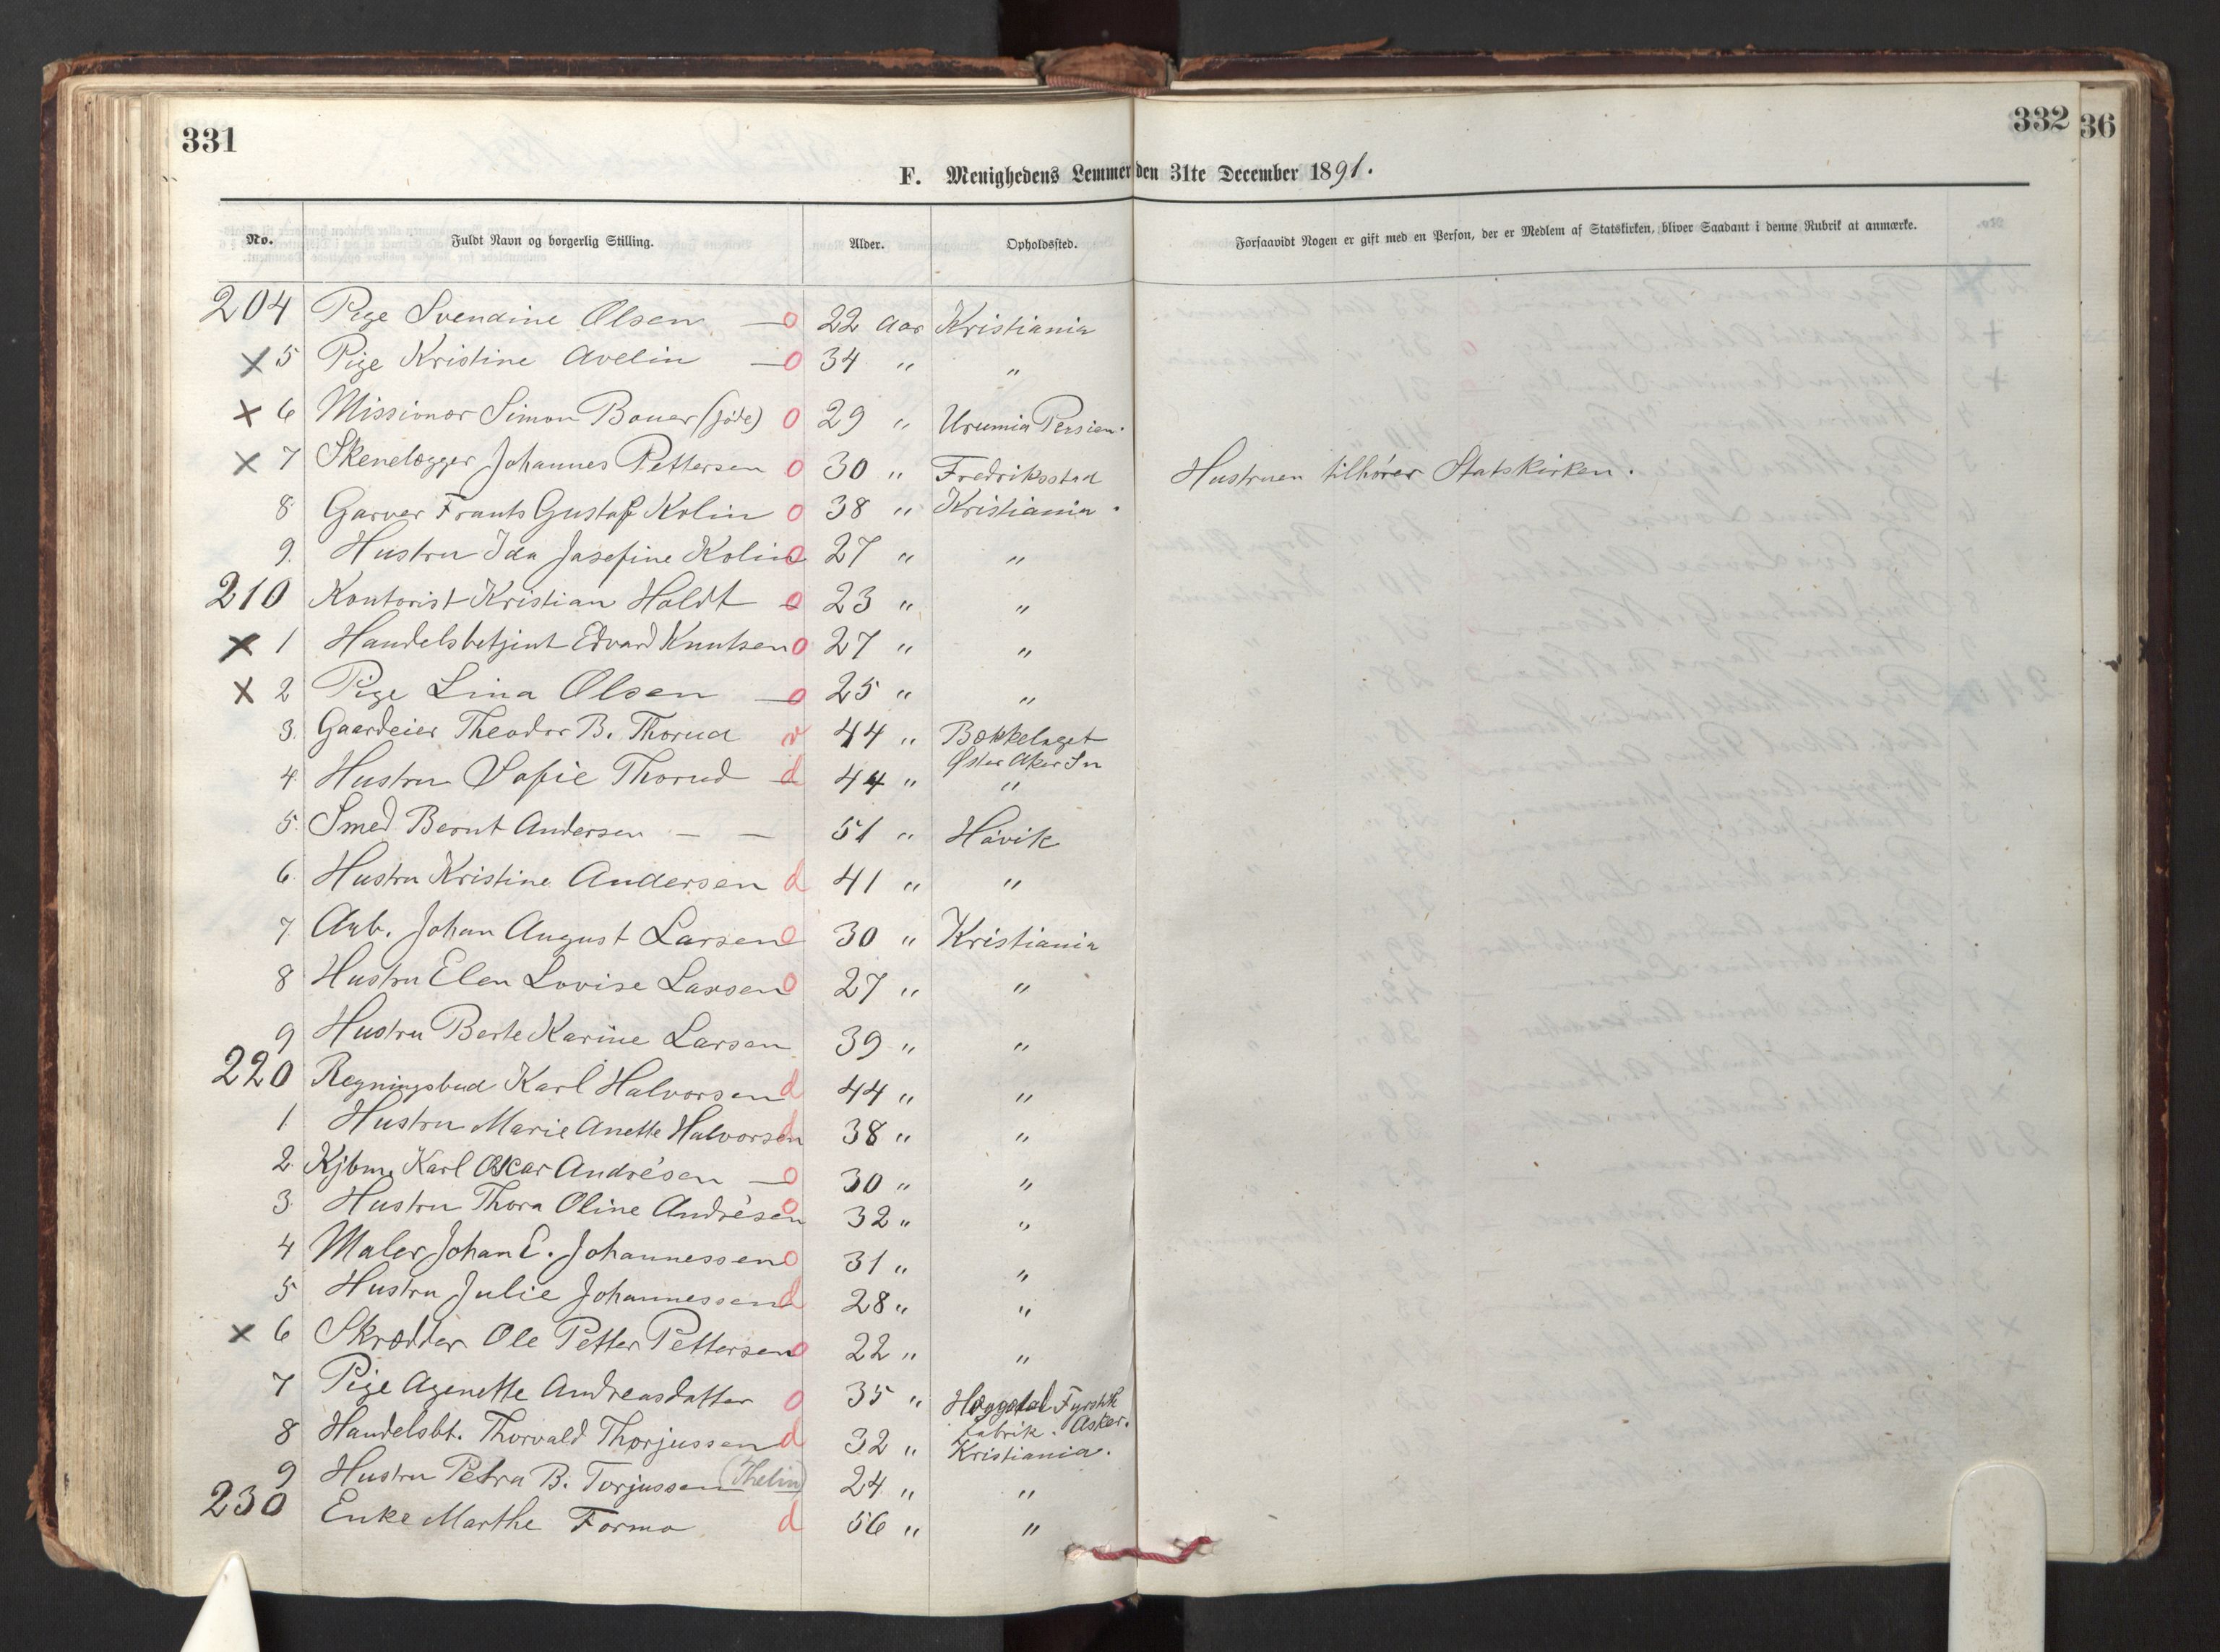 331
332
36
F. Menighedens Lemmer den 31te December 1891.
No. Fuldt Navn og borgerlig Stilling. Alder. Opholdssted. Forsaavidt Nogen er gift med en Person, der er Medlem af Statskirken, bliver Saadant i denne Rubrik at anmærke.
204 Pige Svendine Olsen — o 22 Aar Kristiania
x 5 Pige Kristine Avelin — o 34 " "
x 6 Missionær Simon Bauer (jøde) o 29 " Urumia Persien.
x 7 Skenelægger Johannes Pettersen o 30 " Fredriksstad Hustruen tilhører Statskirken.
8 Garver Frants Gustaf Kolin o 38 " Kristiania.
9. Hustru Ida Josefine Kolin o 27 " "
210 Kontorist Kristian Holdt — o 23 " "
x 1 Handelsbetjent Edvard Knutsen o 27 " "
x 2 Pige Lina Olsen — o 25 " "
3. Gaardeier Theodor B. Thorud v 44 " Bækkelaget
Øster Aker Sn
4. Hustru Sofie Thorud — d 44 " "
5. Smed Bernt Andersen — — 51 " Hövik
6. Hustru Kristine Andersen d 41 " "
7. Arb. Johan August Larsen o 30 " Kristiania
8 Hustru Elen Lovise Larsen o 27 " "
9 Hustru Berte Karine Larsen 39 " "
220 Regningsbud Karl Halvorsen d 44 " "
1 Hustru Marie Anette Halvorsen d 38 " "
2. Kjbm. Karl Oskar Andrésen — o 30 " "
3. Hustru Thora Oline Andrésen o 32 " "
4 Maler Johan E. Johannessen o 31 " "
5 Hustru Julie Johannessen d 28 " "
x 6 Skrædder Ole Petter Pettersen o 22 " "
7 Pige Agenette Andreasdatter o 35 " Fyrstik
fabrik. Asker.
8 Handelsbt. Thorvald Thorjussen d 32 " Kristiania.
9 Hustru Petra B. Torjussen (Thelin) 24 " "
230 Enke Marthe Formo d 56 " "